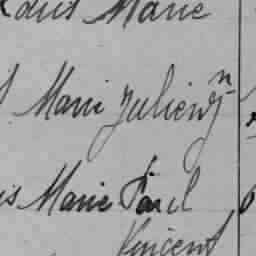 Louis Marie
Marie Julien
is Marie Paul
Vincent